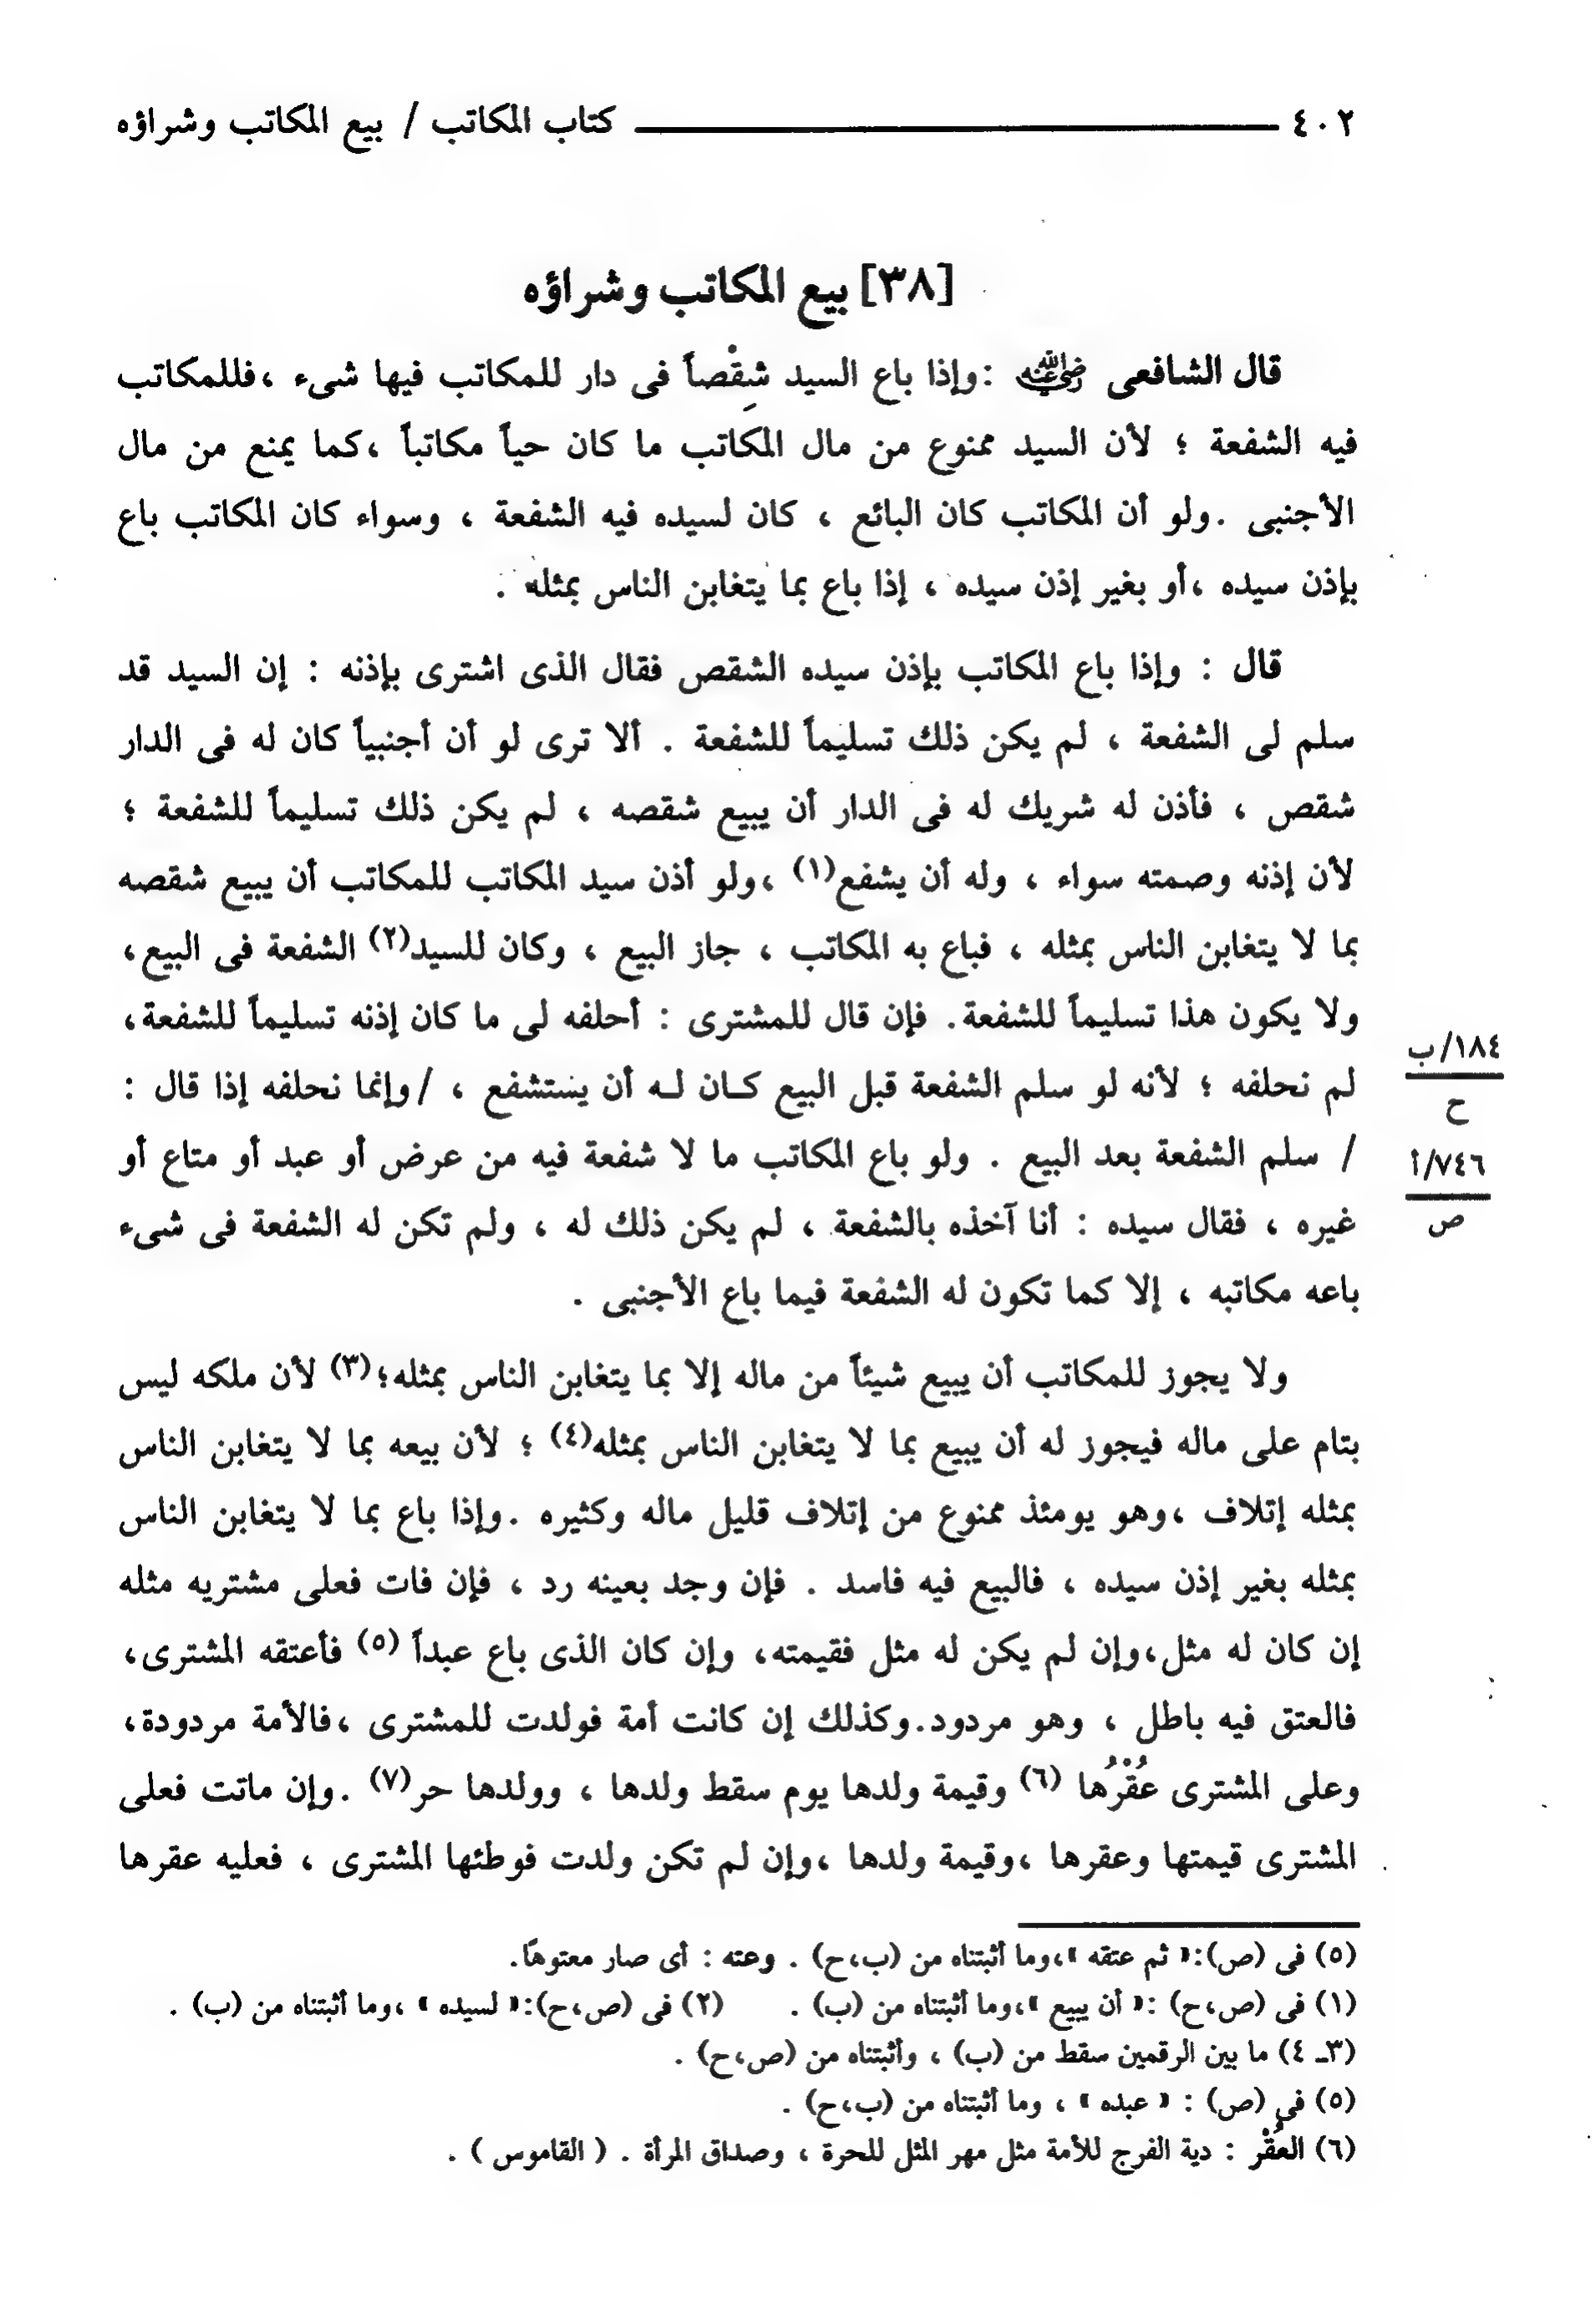 ٤٠٢ كتاب المكاتب / بيع المكاتب وشراؤه
[٣٨] بيع المكاتب وشراؤه
قال الشافعى رضي الله عنه :وإذا باع السيد شِقْصاً فى دار للمكاتب فيها شىء ،فللمكاتب
فيه الشفعة ؛ لأن السيد ممنوع من مال المكاتب ما كان حياً مكاتباً ،كما يمنع من مال
الأجنبى .ولو أن المكاتب كان البائع ، كان لسيده فيه الشفعة ، وسواء كان المكاتب باع
بإذن سيده ،أو بغير إذن سيده ، إذا باع بما يتغابن الناس بمثله .
قال : وإذا باع المكاتب بإذن سيده الشقص فقال الذى اشترى بإذنه : إن السيد قد
سلم لى الشفعة ، لم يكن ذلك تسليماً للشفعة . ألا ترى لو أن أجنبياً كان له فى الدار
شقص ، فأذن له شريك له فى الدار أن يبيع شقصه ، لم يكن ذلك تسليماً للشفعة ؛
لأن إذنه وصمته سواء ، وله أن يشفع(١) ،ولو أذن سيد المكاتب للمكاتب أن يبيع شقصه
بما لا يتغابن الناس بمثله ، فباع به المكاتب ، جاز البيع ، وكان للسيد(٢) الشفعة فى البيع،
ولا يكون هذا تسليماً للشفعة. فإن قال للمشترى : أحلفه لى ما كان إذنه تسليماً للشفعة،
لم نحلفه ؛ لأنه لو سلم الشفعة قبل البيع كـان لـه أن يستشفع ، /وإنما نحلفه إذا قال :
/ سلم الشفعة بعد البيع . ولو باع المكاتب ما لا شفعة فيه من عرض أو عبد أو متاع أو
غيره ، فقال سيده : أنا آخذه بالشفعة ، لم يكن ذلك له ، ولم تكن له الشفعة فى شىء
باعه مكاتبه ، إلا كما تكون له الشفعة فيما باع الأجنبى .
١٨٤/ب
ح
٧٤٦/أ
ص
ولا يجوز للمكاتب أن يبيع شيئاً من ماله إلا بما يتغابن الناس بمثله؛(٣) لأن ملكه ليس
بتام على ماله فيجوز له أن يبيع بما لا يتغابن الناس بمثله(٤) ؛ لأن بيعه بما لا يتغابن الناس
بمثله إتلاف ،وهو يومئذ ممنوع من إتلاف قليل ماله وكثيره .وإذا باع بما لا يتغابن الناس
بمثله بغير إذن سيده ، فالبيع فيه فاسد . فإن وجد بعينه رد ، فإن فات فعلى مشتريه مثله
إن كان له مثل،وإن لم يكن له مثل فقيمته، وإن كان الذى باع عبداً (٥) فأعتقه المشترى،
فالعتق فيه باطل ، وهو مردود.وكذلك إن كانت أمة فولدت للمشترى ،فالأمة مردودة،
وعلى المشترى عُقْرُها (٦) وقيمة ولدها يوم سقط ولدها ، وولدها حر(٧) .وإن ماتت فعلى
المشترى قيمتها وعقرها ،وقيمة ولدها ،وإن لم تكن ولدت فوطئها المشترى ، فعليه عقرها
(٥) فى (ص):« ثم عتقه »،وما أثبتناه من (ب،ح) . وعته : أى صار معتوهًا.
(١) فى (ص،ح) :« أن يبيع »،وما أثبتناه من (ب) . (٢) فى (ص،ح):« لسيده » ،وما أثبتناه من (ب) .
(٣ـ ٤) ما بين الرقمين سقط من (ب) ، وأثبتناه من (ص،ح) .
(٥) فى (ص) : « عبده » ، وما أثبتناه من (ب،ح) .
(٦) العُقْر : دية الفرج للأمة مثل مهر المثل للحرة ، وصداق المرأة . ( القاموس ) .